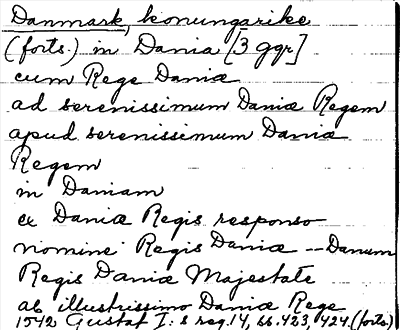 Danmark, konungarike
(forts.) in Dania [3 ggr]
cum Rege Daniæ
ad serenissimum Daniæ Regem
apud serenissimum Daniæ
Regem
in Daniam
ex Daniæ Regis responso
nomine Regis Daniæ -- Danum
Regis Daniæ Majestate
ab illustrissimo Daniæ Rege
1542 Gustaf I:s reg. 14, ss. 423, 424. (forts.)